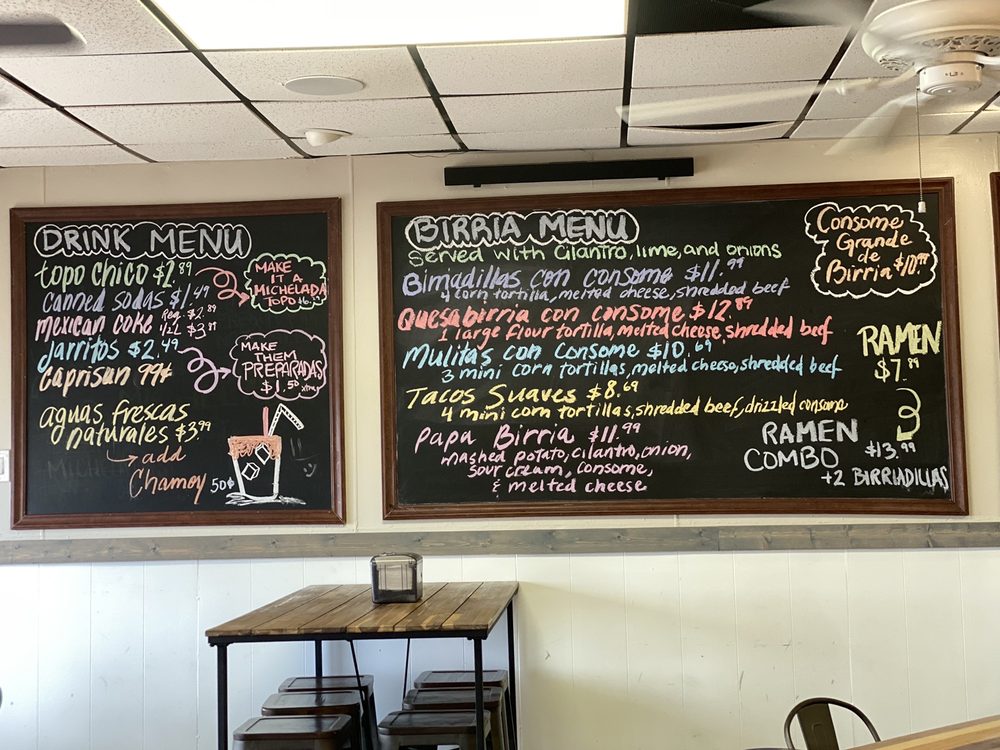 DRINK MENU
topo chico $2.89
canned sodas $1.49
mexican coke Reg. $2.89
1/2L $3.89
jarritos $2.49
caprisun 99¢
aguas frescas
naturales $3.99
→ add
Chamoy 50¢
MAKE
IT A
MICHELADA
TOPO
MAKE
THEM
PREPARADAS
$1.50 xtra
BIRRIA MENU
Served with cilantro, lime, and onions
Birriadillas con consome $11.99
4 corn tortilla, melted cheese, shredded beef
Quesabirria con consome $12.89
1 large flour tortilla, melted cheese, shredded beef
Mulitas con Consome $10.69
3 mini corn tortillas, melted cheese, shredded beef
Tacos Suaves $8.69
4 mini corn tortillas, shredded beef, drizzled consome
Papa Birria $11.99
mashed potato, cilantro, onion,
sour cream, consome,
& melted cheese
Consome
Grande
de
Birria $10.99
RAMEN
$7.89
RAMEN
COMBO $13.99
+2 BIRRIADILLAS